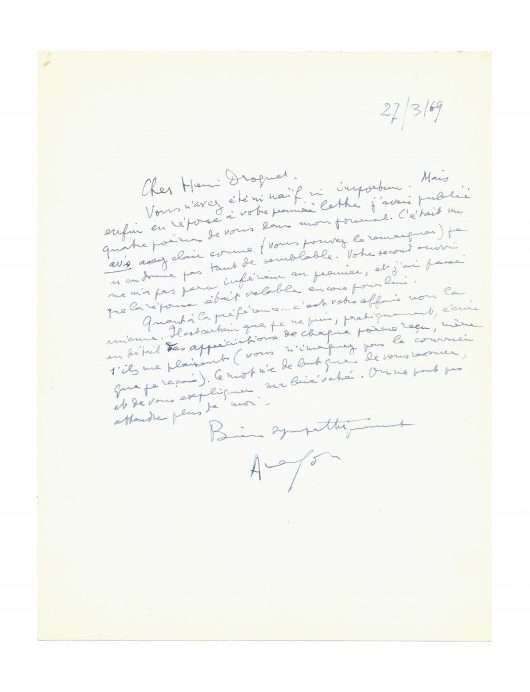 27/3/69
Cher Henri Droguet.
Vous n'avez été ni naïf ni importun. Mais
enfin en réponse à votre première lettre j'avais publié
quatre poèmes de vous dans mon journal. C'était un
avis assez clair comme (vous pouvez le remarquer) je
n'en donne pas tant de semblable. Votre second
ne m'a pas paru inférieur au premier, et j'ai pensé
que la réponse était valable encore pour lui.
Quant à la préférence... c'est votre affaire non la
mienne. Il est certain que je ne puis, pratiquement, écrire
en détail des appréciations de chaque poème reçu, même
s'ils me plaisent (vous n'imaginez pas le courrier
que je reçois). Ce mot n'a de but que de vous rassurer,
et de vous expliquer. On ne peut pas
attendre plus de moi.
Bien sympathiquement
Aragon